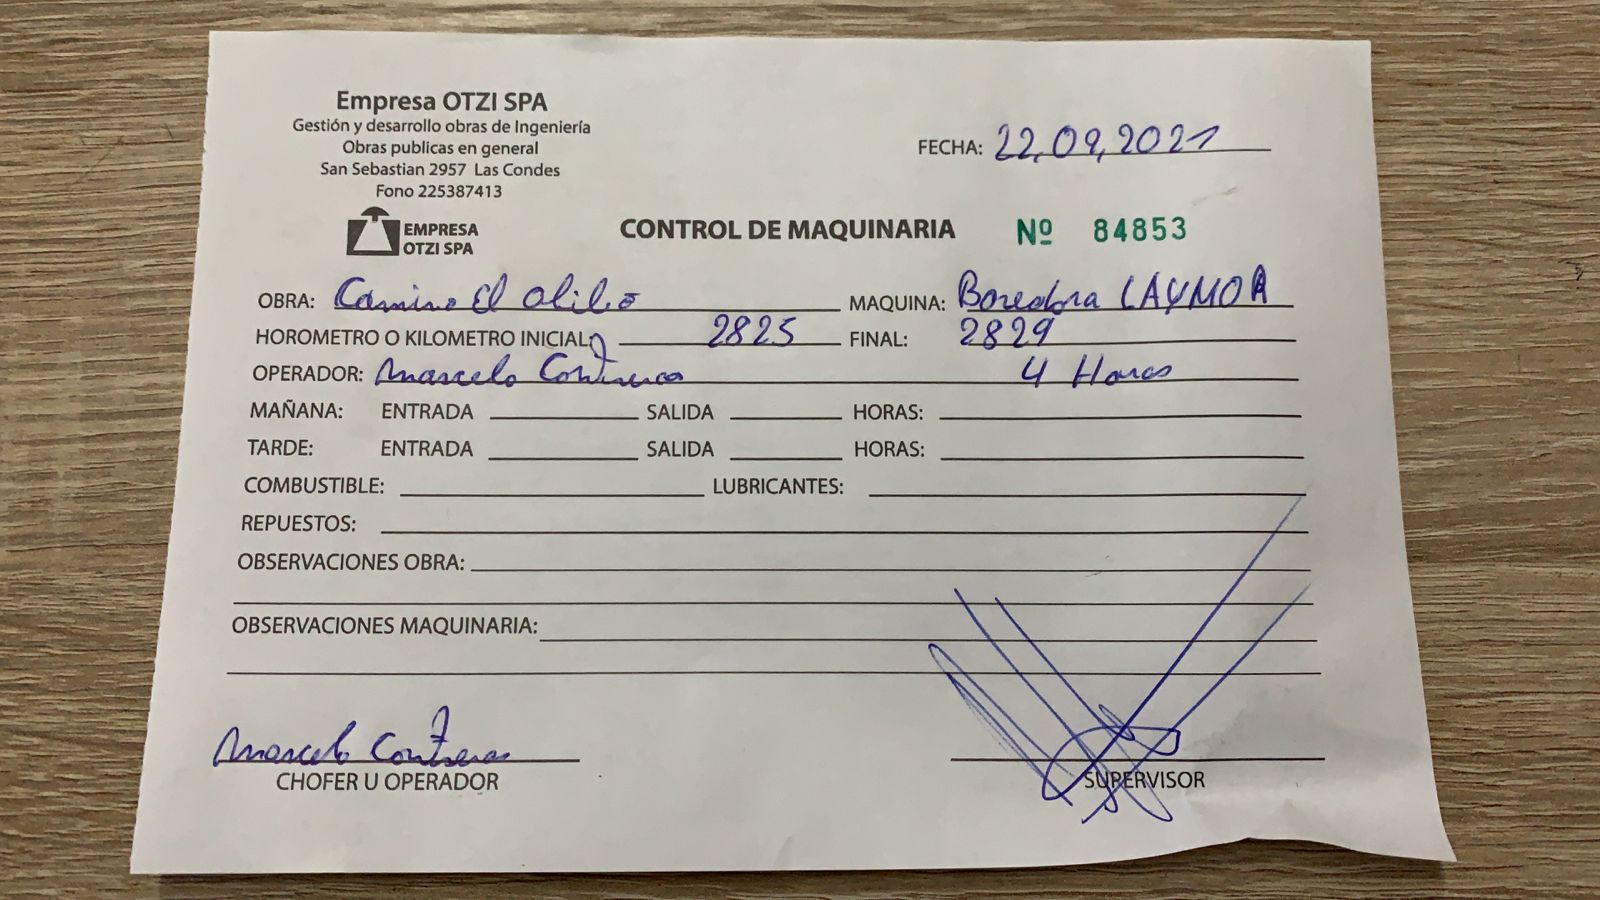 Empresa OTZI SPA
Gestión y desarrollo obras de Ingeniería
Obras publicas en general
San Sebastian 2957 Las Condes
Fono 225387413
EMPRESA
OTZI SPA
FECHA: 22,09,2021
CONTROL DE MAQUINARIA Nº 84853
OBRA: Camino El MAQUINA: LAYMOR
HOROMETRO O KILOMETRO INICIAL: 2825 FINAL: 2829
OPERADOR: Marcelo Contreras 4 Horas
MAÑANA: ENTRADA SALIDA HORAS:
TARDE: ENTRADA SALIDA HORAS:
COMBUSTIBLE: LUBRICANTES:
REPUESTOS:
OBSERVACIONES OBRA:
OBSERVACIONES MAQUINARIA:
Marcelo Contreras
CHOFER U OPERADOR SUPERVISOR